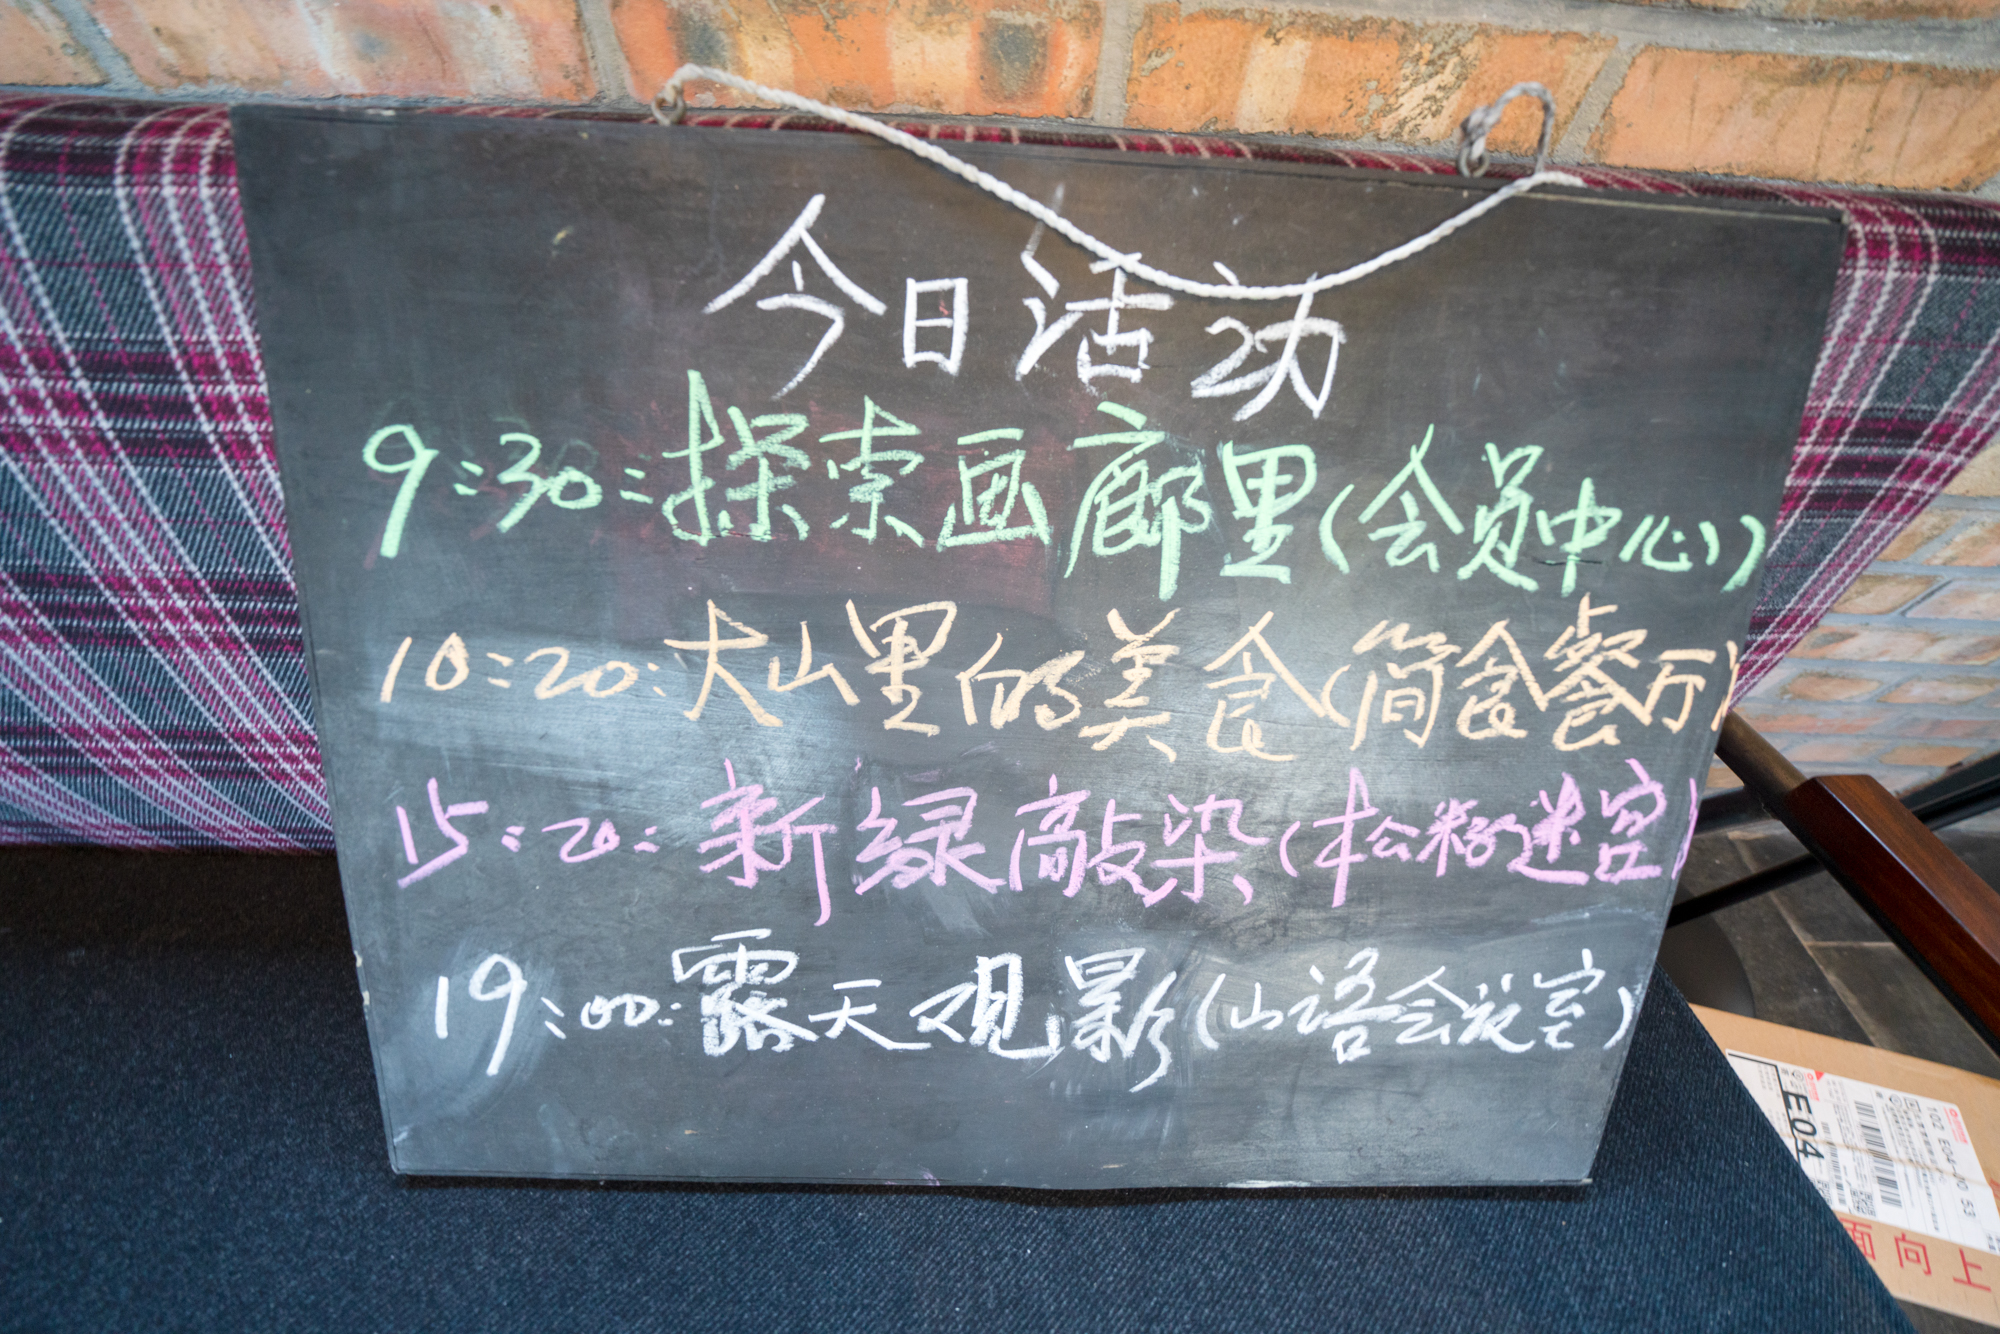 今日活动
9:30:探索画廊里(会员中心)
10:20:大山里的美食(简食餐厅)
15:20:新绿敲染(松粉迷宫)
19:00:露天观影(山语会议室)
E04
102 E04-
53
面向上